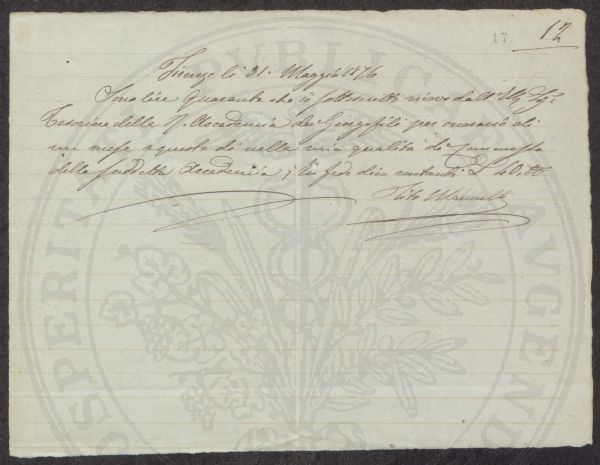 17
12
Firenze li 31. Maggio 1876
Sono lire Quaranta che io sottoscritto ricevo dall' Ill. Sig.
Tesoriere della R. Accademia dei Georgofili per onorario di
un mese a questo dì nella mia qualità di Commesso
della suddetta Accademia; In fede dico contanti £ 40.00
Vito
PROSPERITATI PUBLICAE AUGENDAE